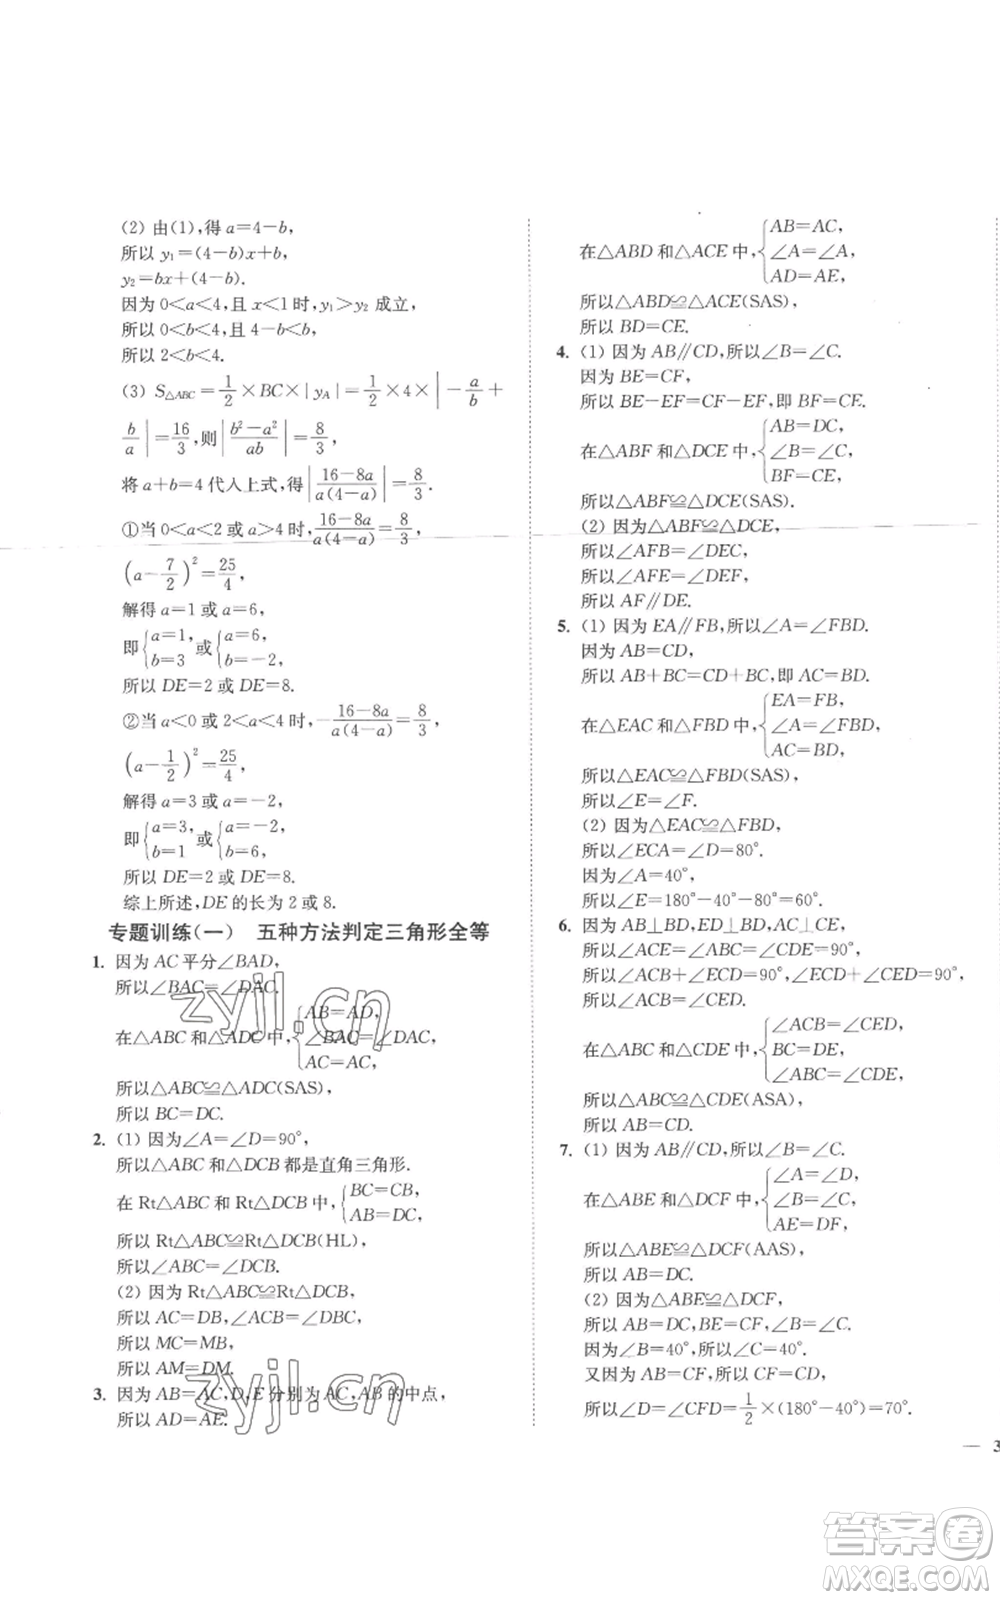 (2) 由(1),得 a=4-b,
所以 y₁=(4-b)x+b,
y₂=bx+(4-b).
因为 0<a<4,且 x<1 时,y₁>y₂ 成立,
所以 0<b<4,且 4-b<b,
所以 2<b<4.
(3) S△ABC=1/2×BC×|yA|=1/2×4×|-a/b+
b/a|=16/3,则|(b²-a²)/ab|=8/3,
将 a+b=4 代人上式,得|(16-8a)/(a(4-a))|=8/3.
①当 0<a<2 或 a>4 时,(16-8a)/(a(4-a))=8/3,
(a-7/2)²=25/4,
解得 a=1 或 a=6,
即{a=1, b=3 或{a=6, b=-2,
所以 DE=2 或 DE=8.
②当 a<0 或 2<a<4 时,-(16-8a)/(a(4-a))=8/3,
(a-1/2)²=25/4,
解得 a=3 或 a=-2,
即{a=3, b=1 或{a=-2, b=6,
所以 DE=2 或 DE=8.
综上所述,DE 的长为 2 或 8.
专题训练(一) 五种方法判定三角形全等
1. 因为 AC 平分∠BAD,
所以∠BAC=∠DAC.
在△ABC 和△ADC 中,{AB=AD, ∠BAC=∠DAC, AC=AC,
所以△ABC≌△ADC(SAS),
所以 BC=DC.
2. (1) 因为∠A=∠D=90°,
所以△ABC 和△DCB 都是直角三角形.
在 Rt△ABC 和 Rt△DCB 中,{BC=CB, AB=DC,
所以 Rt△ABC≌Rt△DCB(HL),
所以∠ABC=∠DCB.
(2) 因为 Rt△ABC≌Rt△DCB,
所以 AC=DB,∠ACB=∠DBC,
所以 MC=MB,
所以 AM=DM.
3. 因为 AB=AC,D,E 分别为 AC,AB 的中点,
所以 AD=AE.
在△ABD 和△ACE 中,{AB=AC, ∠A=∠A, AD=AE,
所以△ABD≌△ACE(SAS),
所以 BD=CE.
4. (1) 因为 AB∥CD,所以∠B=∠C.
因为 BE=CF,
所以 BE-EF=CF-EF,即 BF=CE.
在△ABF 和△DCE 中,{AB=DC, ∠B=∠C, BF=CE,
所以△ABF≌△DCE(SAS).
(2) 因为△ABF≌△DCE,
所以∠AFB=∠DEC,
所以∠AFE=∠DEF,
所以 AF∥DE.
5. (1) 因为 EA∥FB,所以∠A=∠FBD.
因为 AB=CD,
所以 AB+BC=CD+BC,即 AC=BD.
在△EAC 和△FBD 中,{EA=FB, ∠A=∠FBD, AC=BD,
所以△EAC≌△FBD(SAS),
所以∠E=∠F.
(2) 因为△EAC≌△FBD,
所以∠ECA=∠D=80°.
因为∠A=40°,
所以∠E=180°-40°-80°=60°.
6. 因为 AB⊥BD,ED⊥BD,AC⊥CE,
所以∠B=∠D=∠ACE=90°,
所以∠ACB+∠ECD=90°,∠ECD+∠CED=90°,
所以∠ACB=∠CED.
在△ABC 和△CDE 中,{∠ACB=∠CED, BC=DE, ∠ABC=∠CDE,
所以△ABC≌△CDE(ASA),
所以 AB=CD.
7. (1) 因为 AB∥CD,所以∠B=∠C.
在△ABE 和△DCF 中,{∠A=∠D, ∠B=∠C, AE=DF,
所以△ABE≌△DCF(AAS),
所以 AB=DC.
(2) 因为△ABE≌△DCF,
所以 AB=DC,BE=CF,∠B=∠C.
因为∠B=40°,所以∠C=40°.
又因为 AB=CF,所以 CF=CD,
所以∠D=∠CFD=1/2×(180°-40°)=70°.
— 3
zyjl.cn
zyjl.cn
答案卷
MXQE.COM